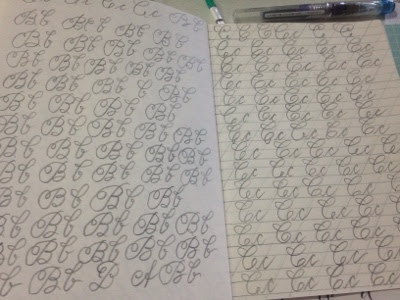 Cc Cc Cc Cc
Bb Bb Bb Bb Bb
Bb Bb Bb Bb
Bb Bb Bb Bb Bb
Bb Bb Bb Bb Bb
Bb Bb Bb Bb Bb
Bb Bb Bb Bb Bb
Bb Bb Bb Bb Bb
Bb Bb Bb Bb Bb
Bb Bb Bb Bb Bb
Bb Bb Bb Bb
Bb Bb Bb Bb Bb
Bb Bb Bb Bb Bb
Bb B A Bb
Cc Cc Cc Cc Cc
Cc Cc Cc Cc Cc
Cc Cc Cc Cc Cc
Cc Cc Cc Cc Cc
Cc Cc Cc Cc Cc
Cc Cc Cc Cc Cc
Cc Cc Cc Cc Cc
Cc Cc Cc Cc Cc
Cc Cc Cc Cc Cc
Cc Cc Cc Cc Cc
Cc Cc Cc Cc Cc
Cc Cc Cc Cc
Cc Cc Cc Cc
Cc Cc Cc Cc
Cc Cc Cc Cc